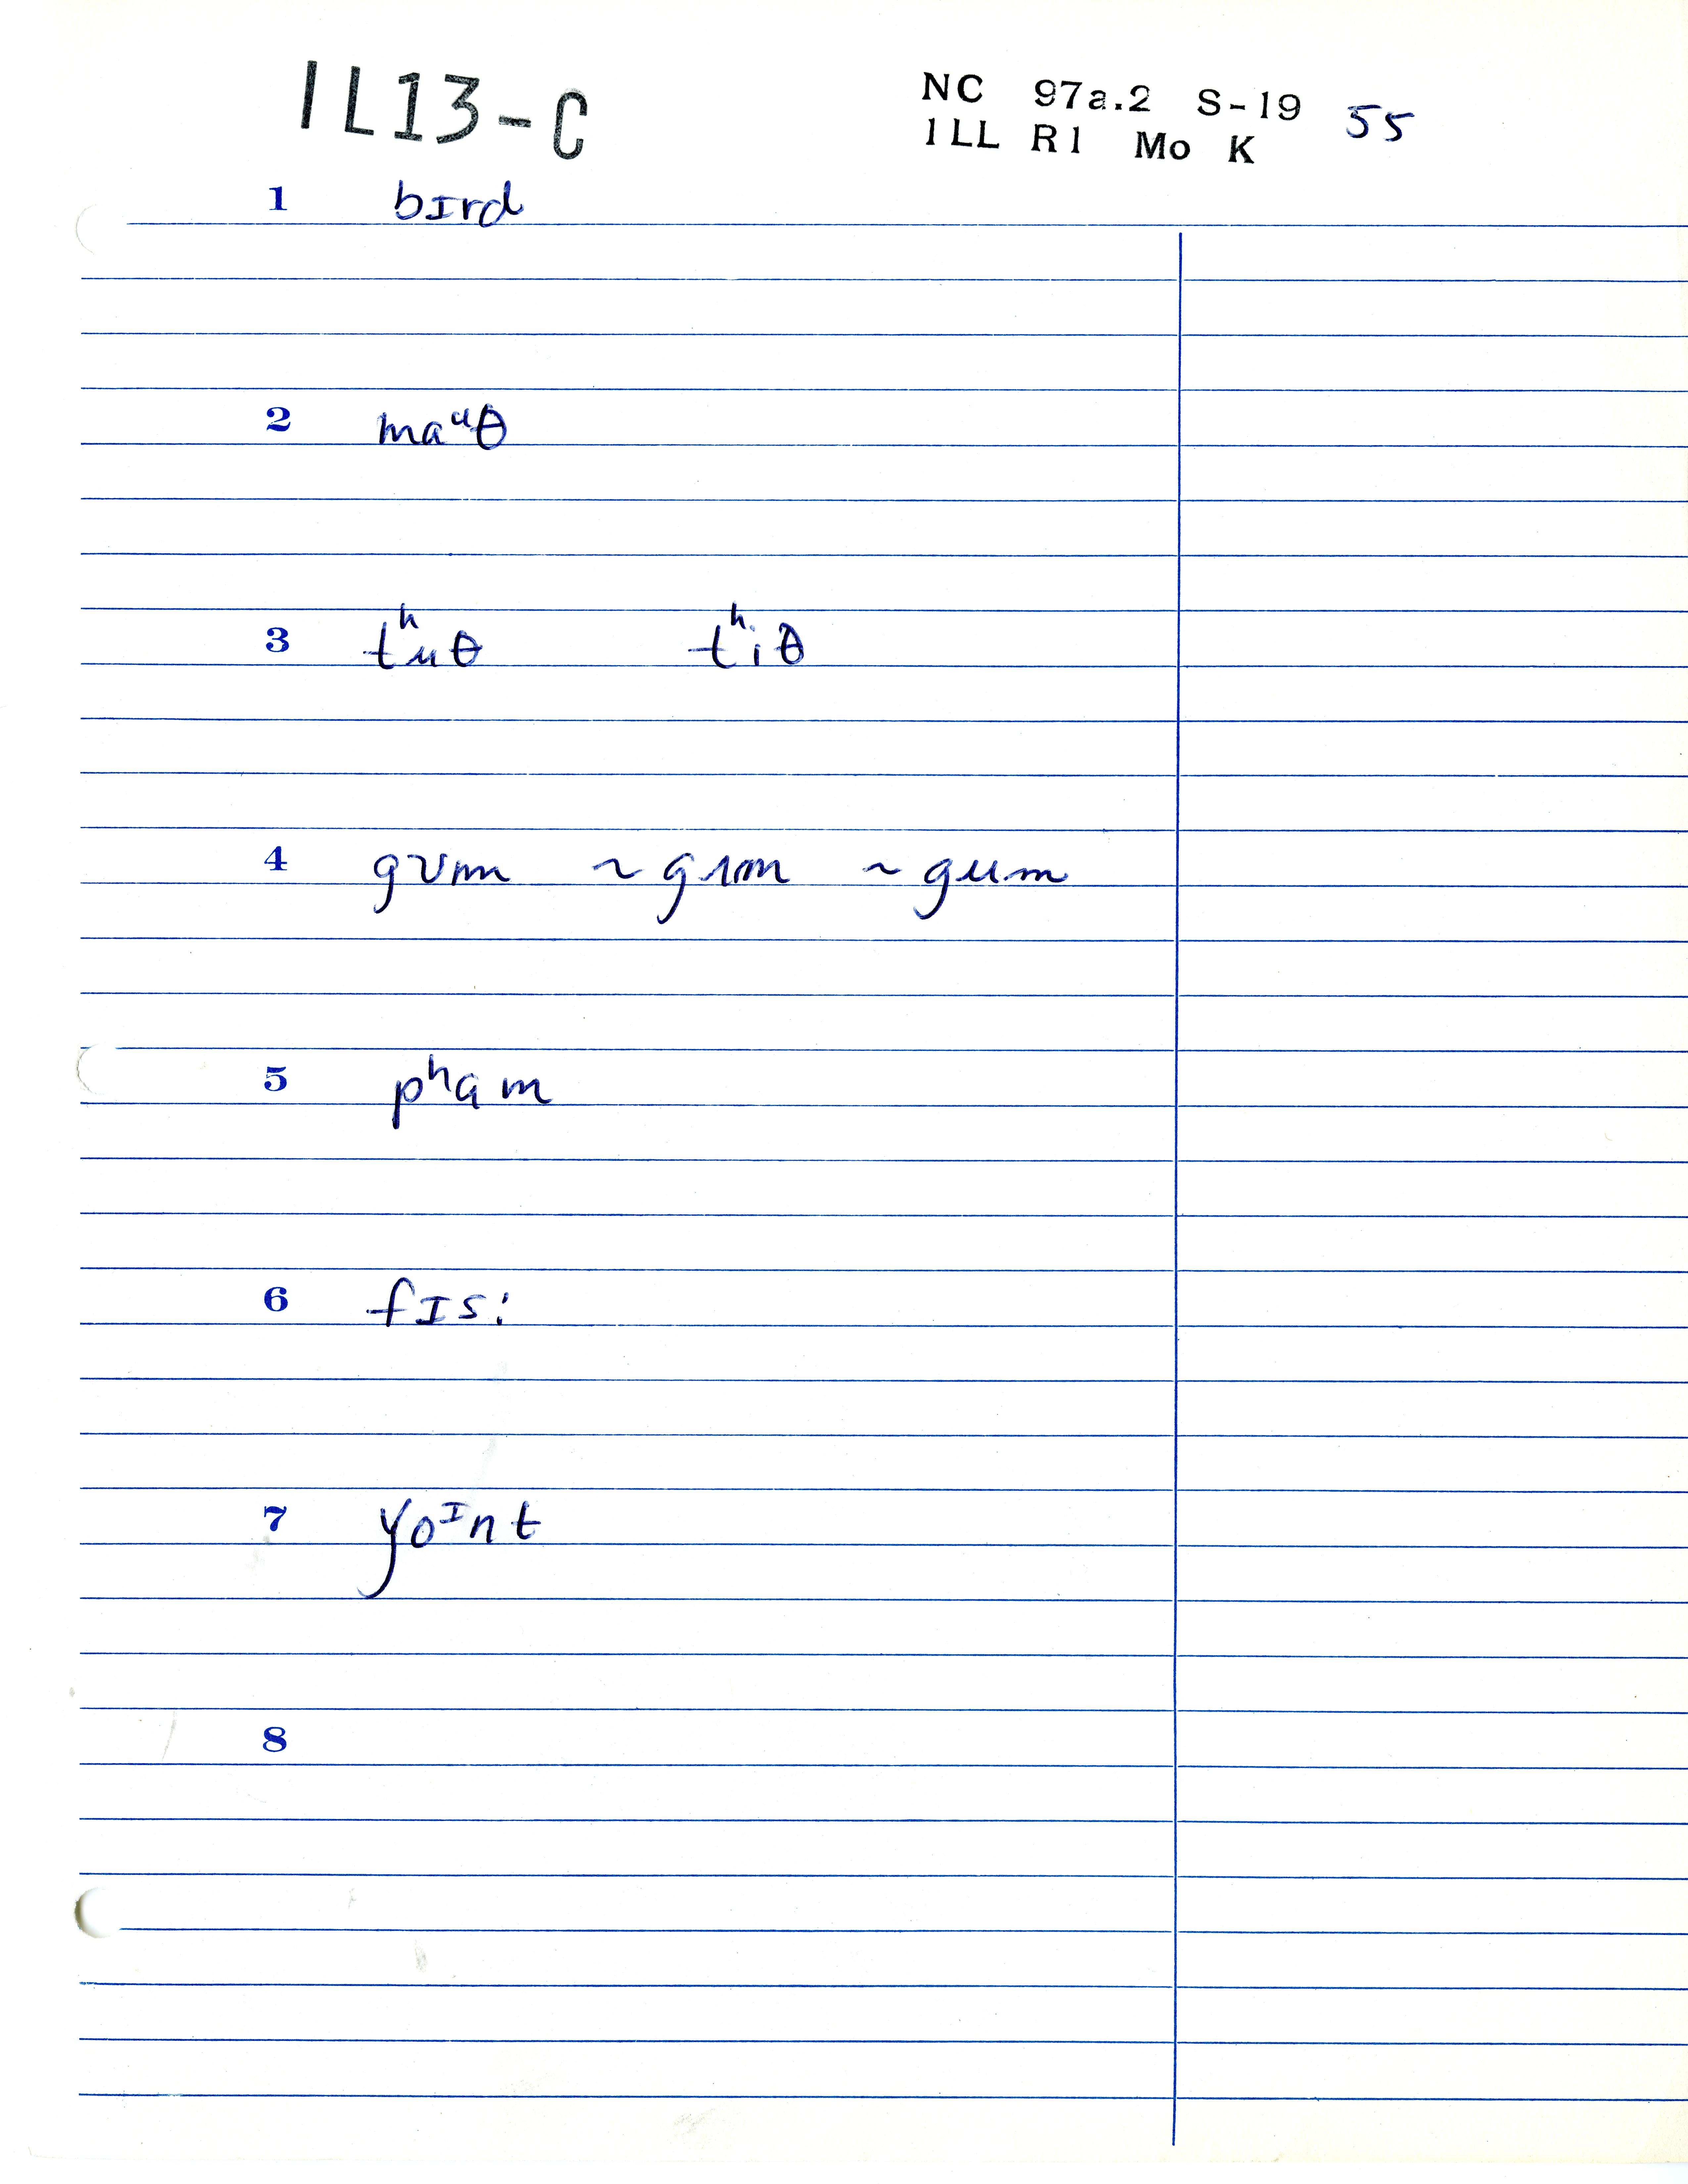 IL13-C
NC 97a.2 S-19 55
ILL R1 Mo K
1 bɪrd
2 maᵘθ
3 tʰuθ tʰiθ
4 gʊm ~ gɪm ~ gum
5 pʰam
6 fɪs:
7 yoᴵnt
8